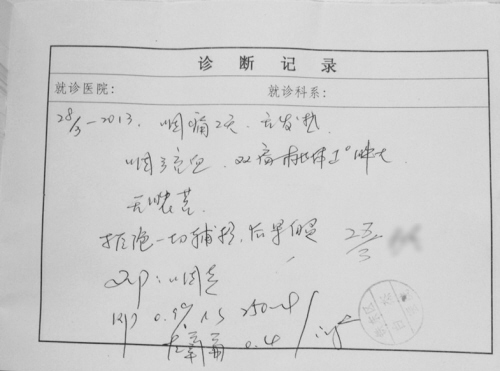 诊断记录
就诊医院: 就诊科系:
28/3-2013. 咽痛2天. 无发热
咽充血. 双扁桃体I°肿大
无脓苔
拒绝一切辅检, 后果自负
诊: 咽炎
Rp 0.9% NS 250ml / ivgtt
左氧 0.4